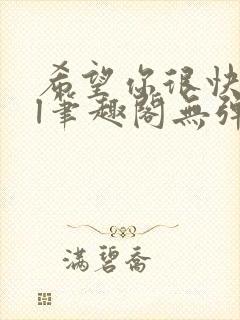 希望你很快
1笔趣阁无弹
满碧乔